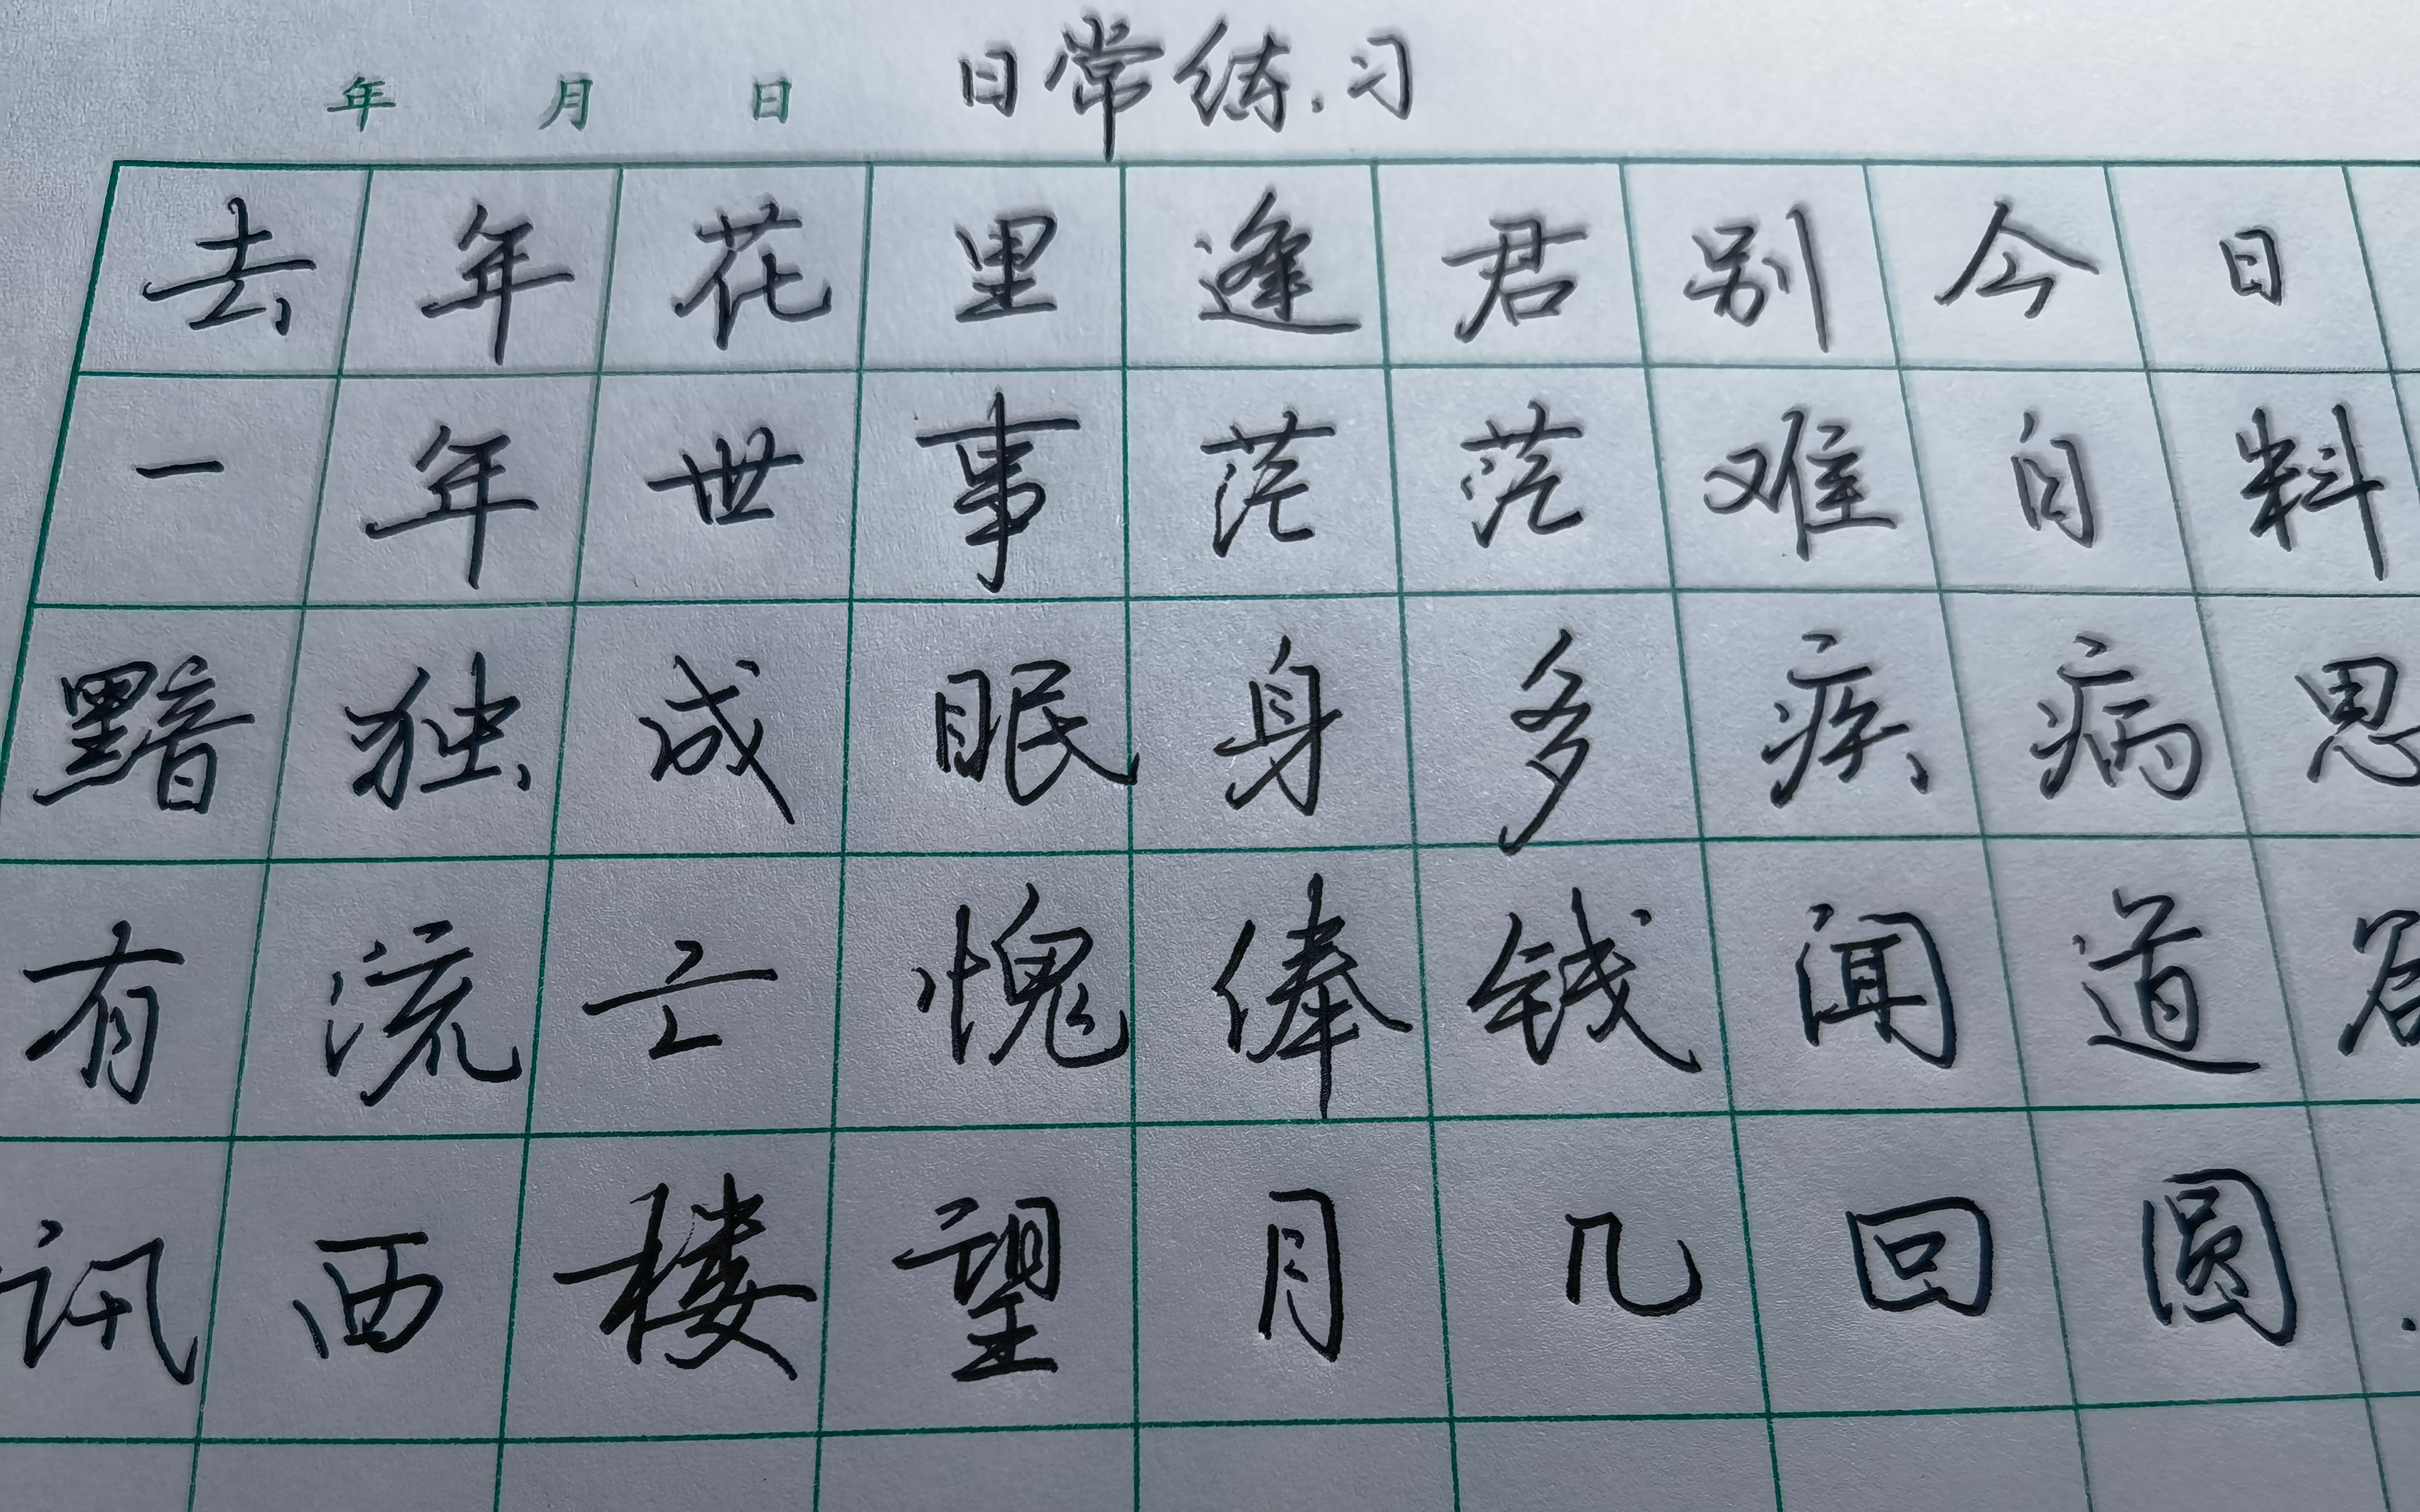 年 月 日 日常练习
去年花里逢君别今日
一年世事茫茫难自料
黯独成眠身多疾病思
有流亡愧俸钱闻道
讯西楼望月几回圆